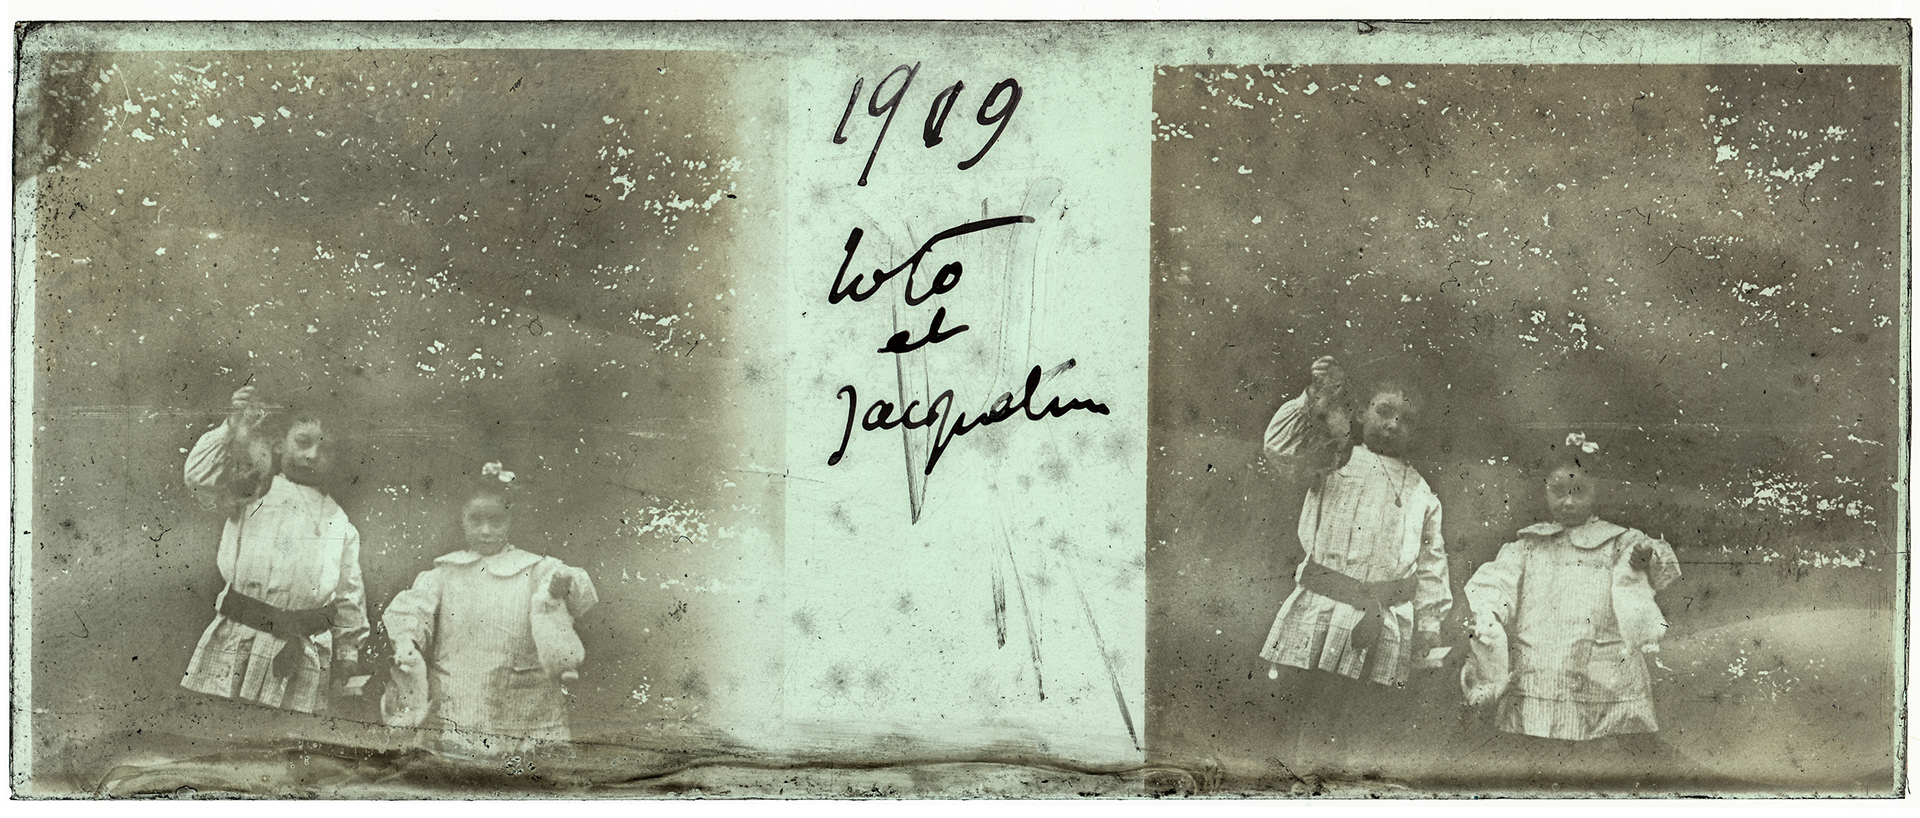 1909
Loto
et
Jacqueline